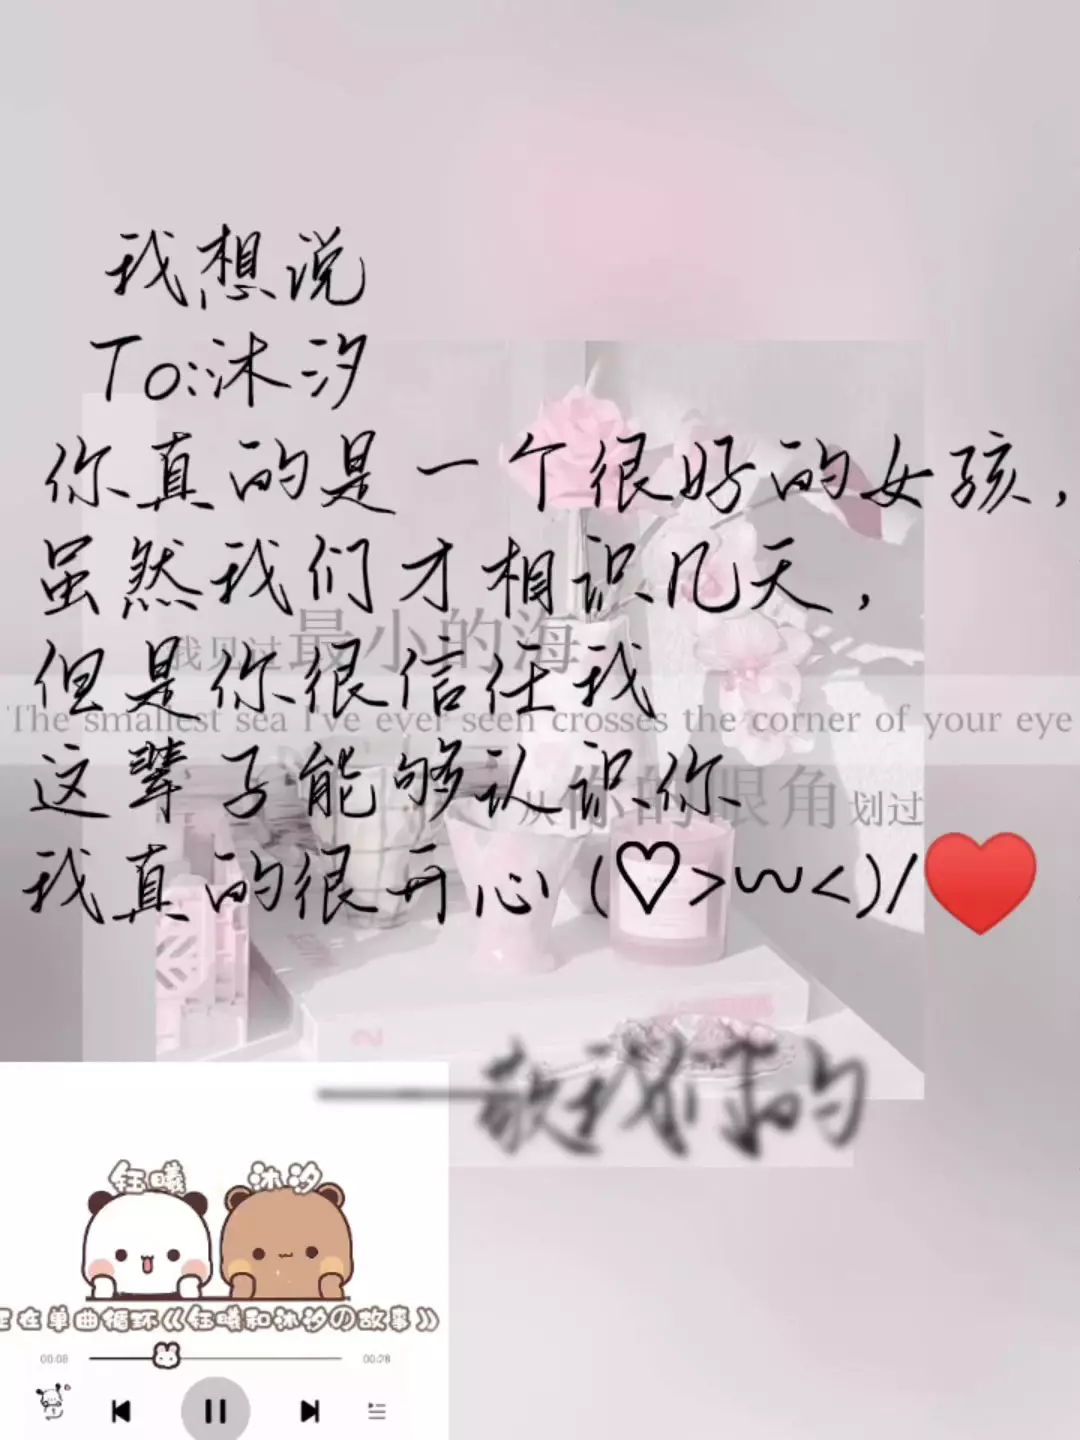 我想说
To:沐汐
你真的是一个很好的女孩，
虽然我们才相识几天，
我见过最小的海
但是你很信任我
The smallest sea I've ever seen crosses the corner of your eye
这辈子能够认识你
从你的眼角划过
我真的很开心 (♡>~<)/♥
钰曦 沐汐
正在单曲循环《钰曦和沐汐の故事》
00:08 00:28